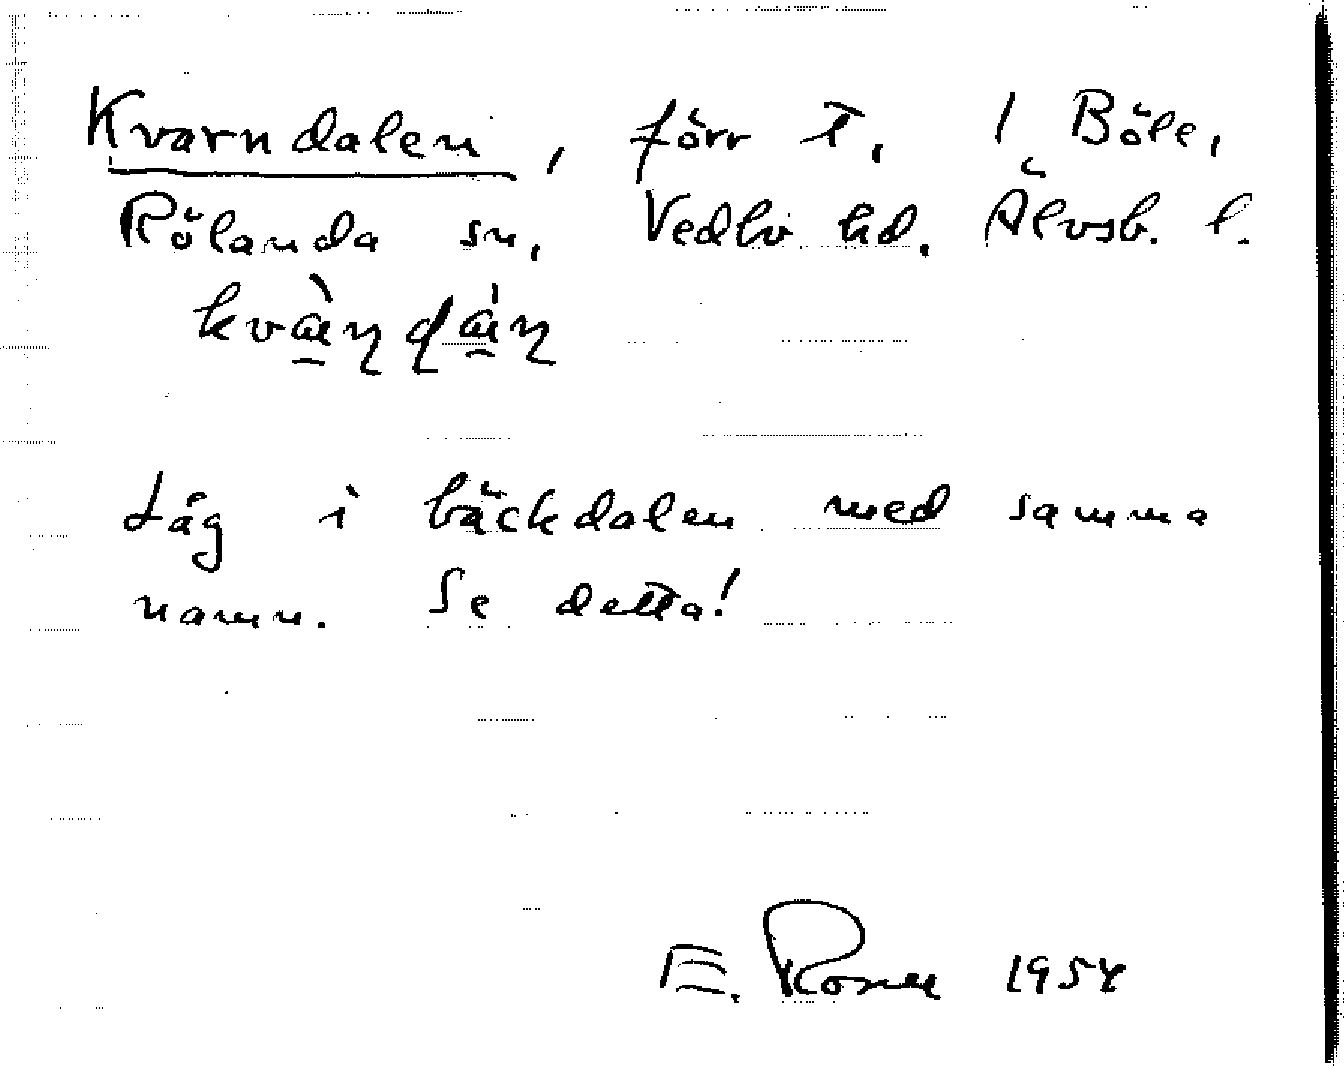 Kvarndalen, förr t. 1 Böle,
Rölanda sn, Vedbo hd. Älvsb. l.
Låg i bäckdalen med samma
namn. Se detta!
E. 1954